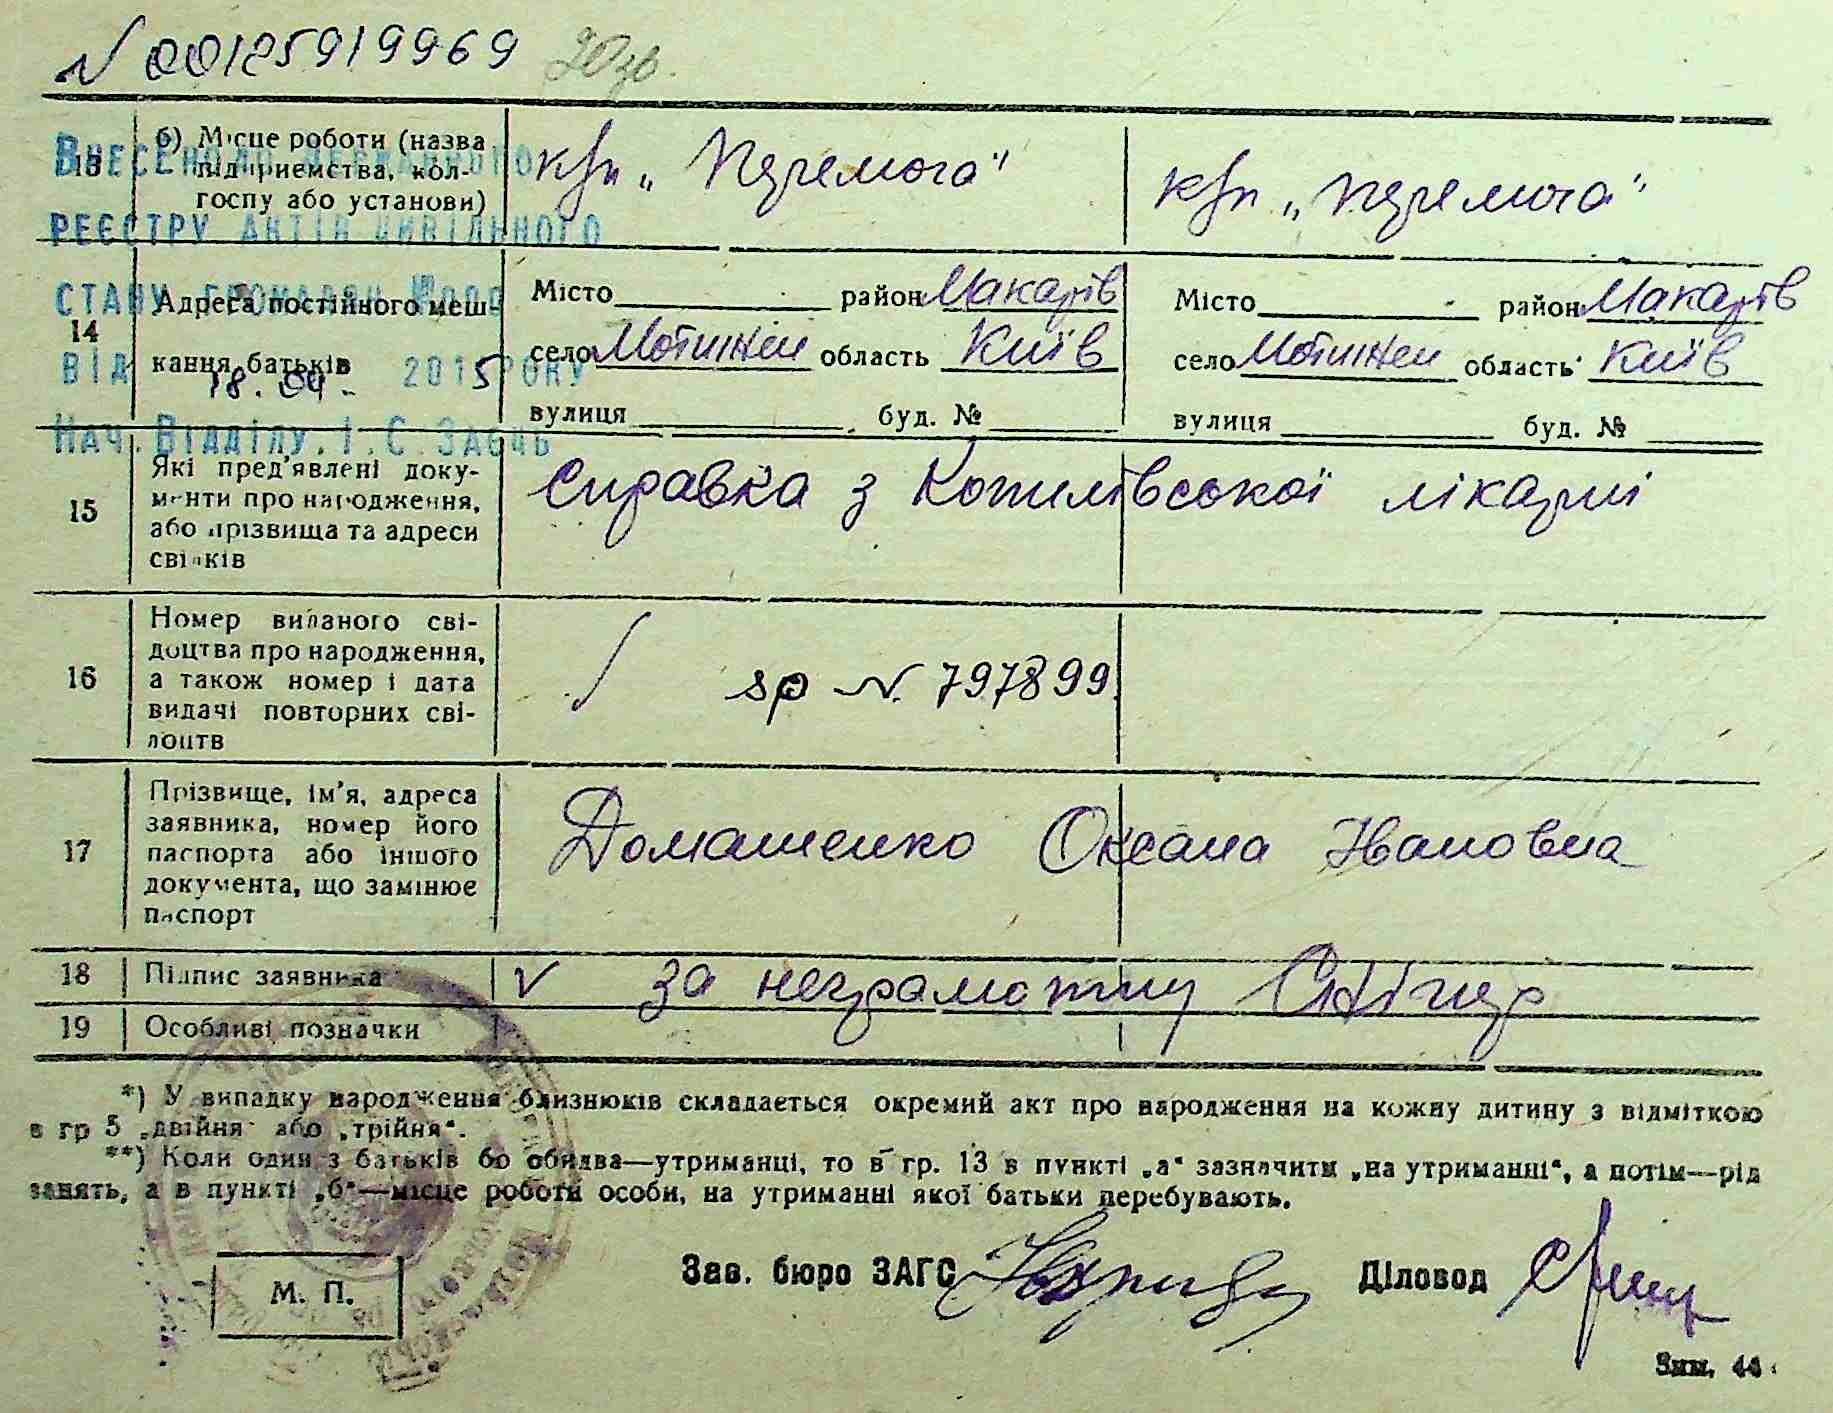 N 00125919969
ВНЕСЕНО ДО ДЕРЖАВНОГО
РЕЄСТРУ АКТІВ ЦИВІЛЬНОГО
СТАНУ ГРОМАДЯН
ВІД 18.04. 2015 РОКУ
НАЧ. ВІДДІЛУ. І. С. ЗАЄЦЬ
13 б) Місце роботи (назва
підприємства, кол-
госпу або установи)
к/гп „Перемога"
к/гп „Перемога"
14 Адреса постійного меш-
кання батьків
Місто район Макарів
село Мотижен область Київ
вулиця буд. №
Місто район Макарів
село Мотижен область Київ
вулиця буд. №
15 Які пред'явлені доку-
менти про народження,
або прізвища та адреси
свідків
Справка з Копилівської лікарні
16 Номер виданого сві-
доцтва про народження,
а також номер і дата
видачі повторних сві-
доцтв
N. 797899
17 Прізвище, ім'я, адреса
заявника, номер його
паспорта або іншого
документа, що замінює
паспорт
Домашенко Оксана Ивановна
18 Підпис заявника
V за неграмотну
19 Особливі позначки
*) У випадку народження близнюків складається окремий акт про народження на кожну дитину з відміткою
в гр 5 „двійня" або „трійня".
**) Коли один з батьків бо обидва—утриманці, то в гр. 13 в пункті „а" зазначити „на утриманні", а потім—рід
занять, а в пункті „б"—місце роботи особи, на утриманні якої батьки перебувають.
Зав. бюро ЗАГС Діловод
М. П.
Зим. 44